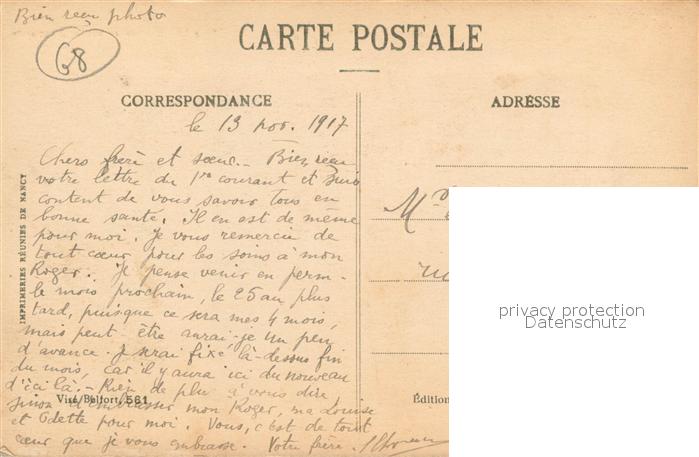 Bien reçu photo
68
CARTE POSTALE
CORRESPONDANCE
ADRESSE
le 13 nov. 1917
Chers frère et sœur. - Bien reçu
votre lettre du 1er courant et suis
content de vous savoir tous en
bonne santé. Il en est de même
pour moi. Je vous remercie de
tout cœur pour les soins à mon
Roger. Je pense venir en perm-
le mois prochain, le 25 au plus
tard, puisque ce sera mes 4 mois,
mais peut-être aurai-je un peu
d'avance. Je serai fixé là-dessus fin
du mois, car il y aura ici du nouveau
d'ici là. - Rien de plus à vous dire
sinon d'embrasser mon Roger, ma Louise
et Odette pour moi. Vous, c'est de tout
cœur que je vous embrasse. Votre frère.
IMPRIMERIES RÉUNIES DE NANCY
Visé/Belfort, 561
Édition
privacy protection
Datenschutz